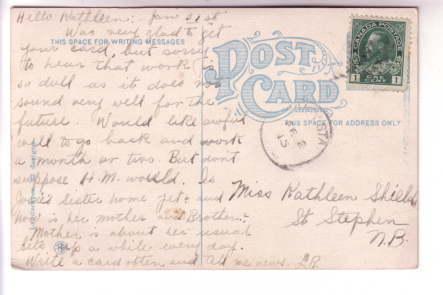 Hello Kathleen: Jan 31st
Was very glad to get
your card, but sorry
to hear that work is
so dull as it does not
sound very well for the
future. Would like awful
well to go back and work
a month or two. But dont
suppose H.M. would. Is
sister home yet & and
how is her mother and Brother.
Mother is about her usual
sits up a while every day.
Write a card often and all me news. L.R.
THIS SPACE FOR WRITING MESSAGES
POST
CARD
THIS SPACE FOR ADDRESS ONLY
CANADA POSTAGE
1 1
Miss Kathleen Shield
St Stephen
N.B.